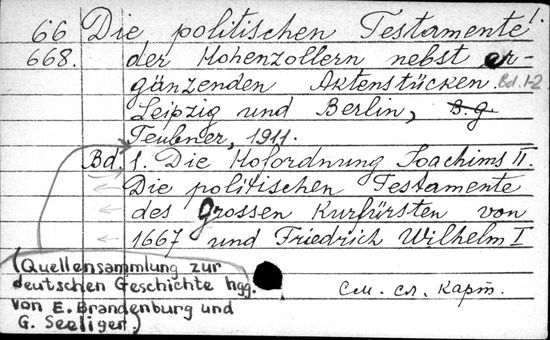 66 Die politischen Testamente!.
668. der Hohenzollern nebst er-
gänzenden Aktenstücken. Bd. 1-2
Leipzig und Berlin, B.g
Teubner, 1911.
Bd. 1. Die Hofordnung Joachims II.
Die politischen Testamente
des Grossen Kurfürsten von
1667 und Friedrich Wilhelm I
(Quellensammlung zur
deutschen Geschichte hgg.
von E. Brandenburg und
G. Seeliger.)
См. сл. карт.